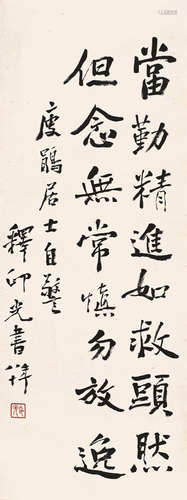 當勤精進如救頭然
但念無常慎勿放逸
廋鵑居士自警
釋印光書